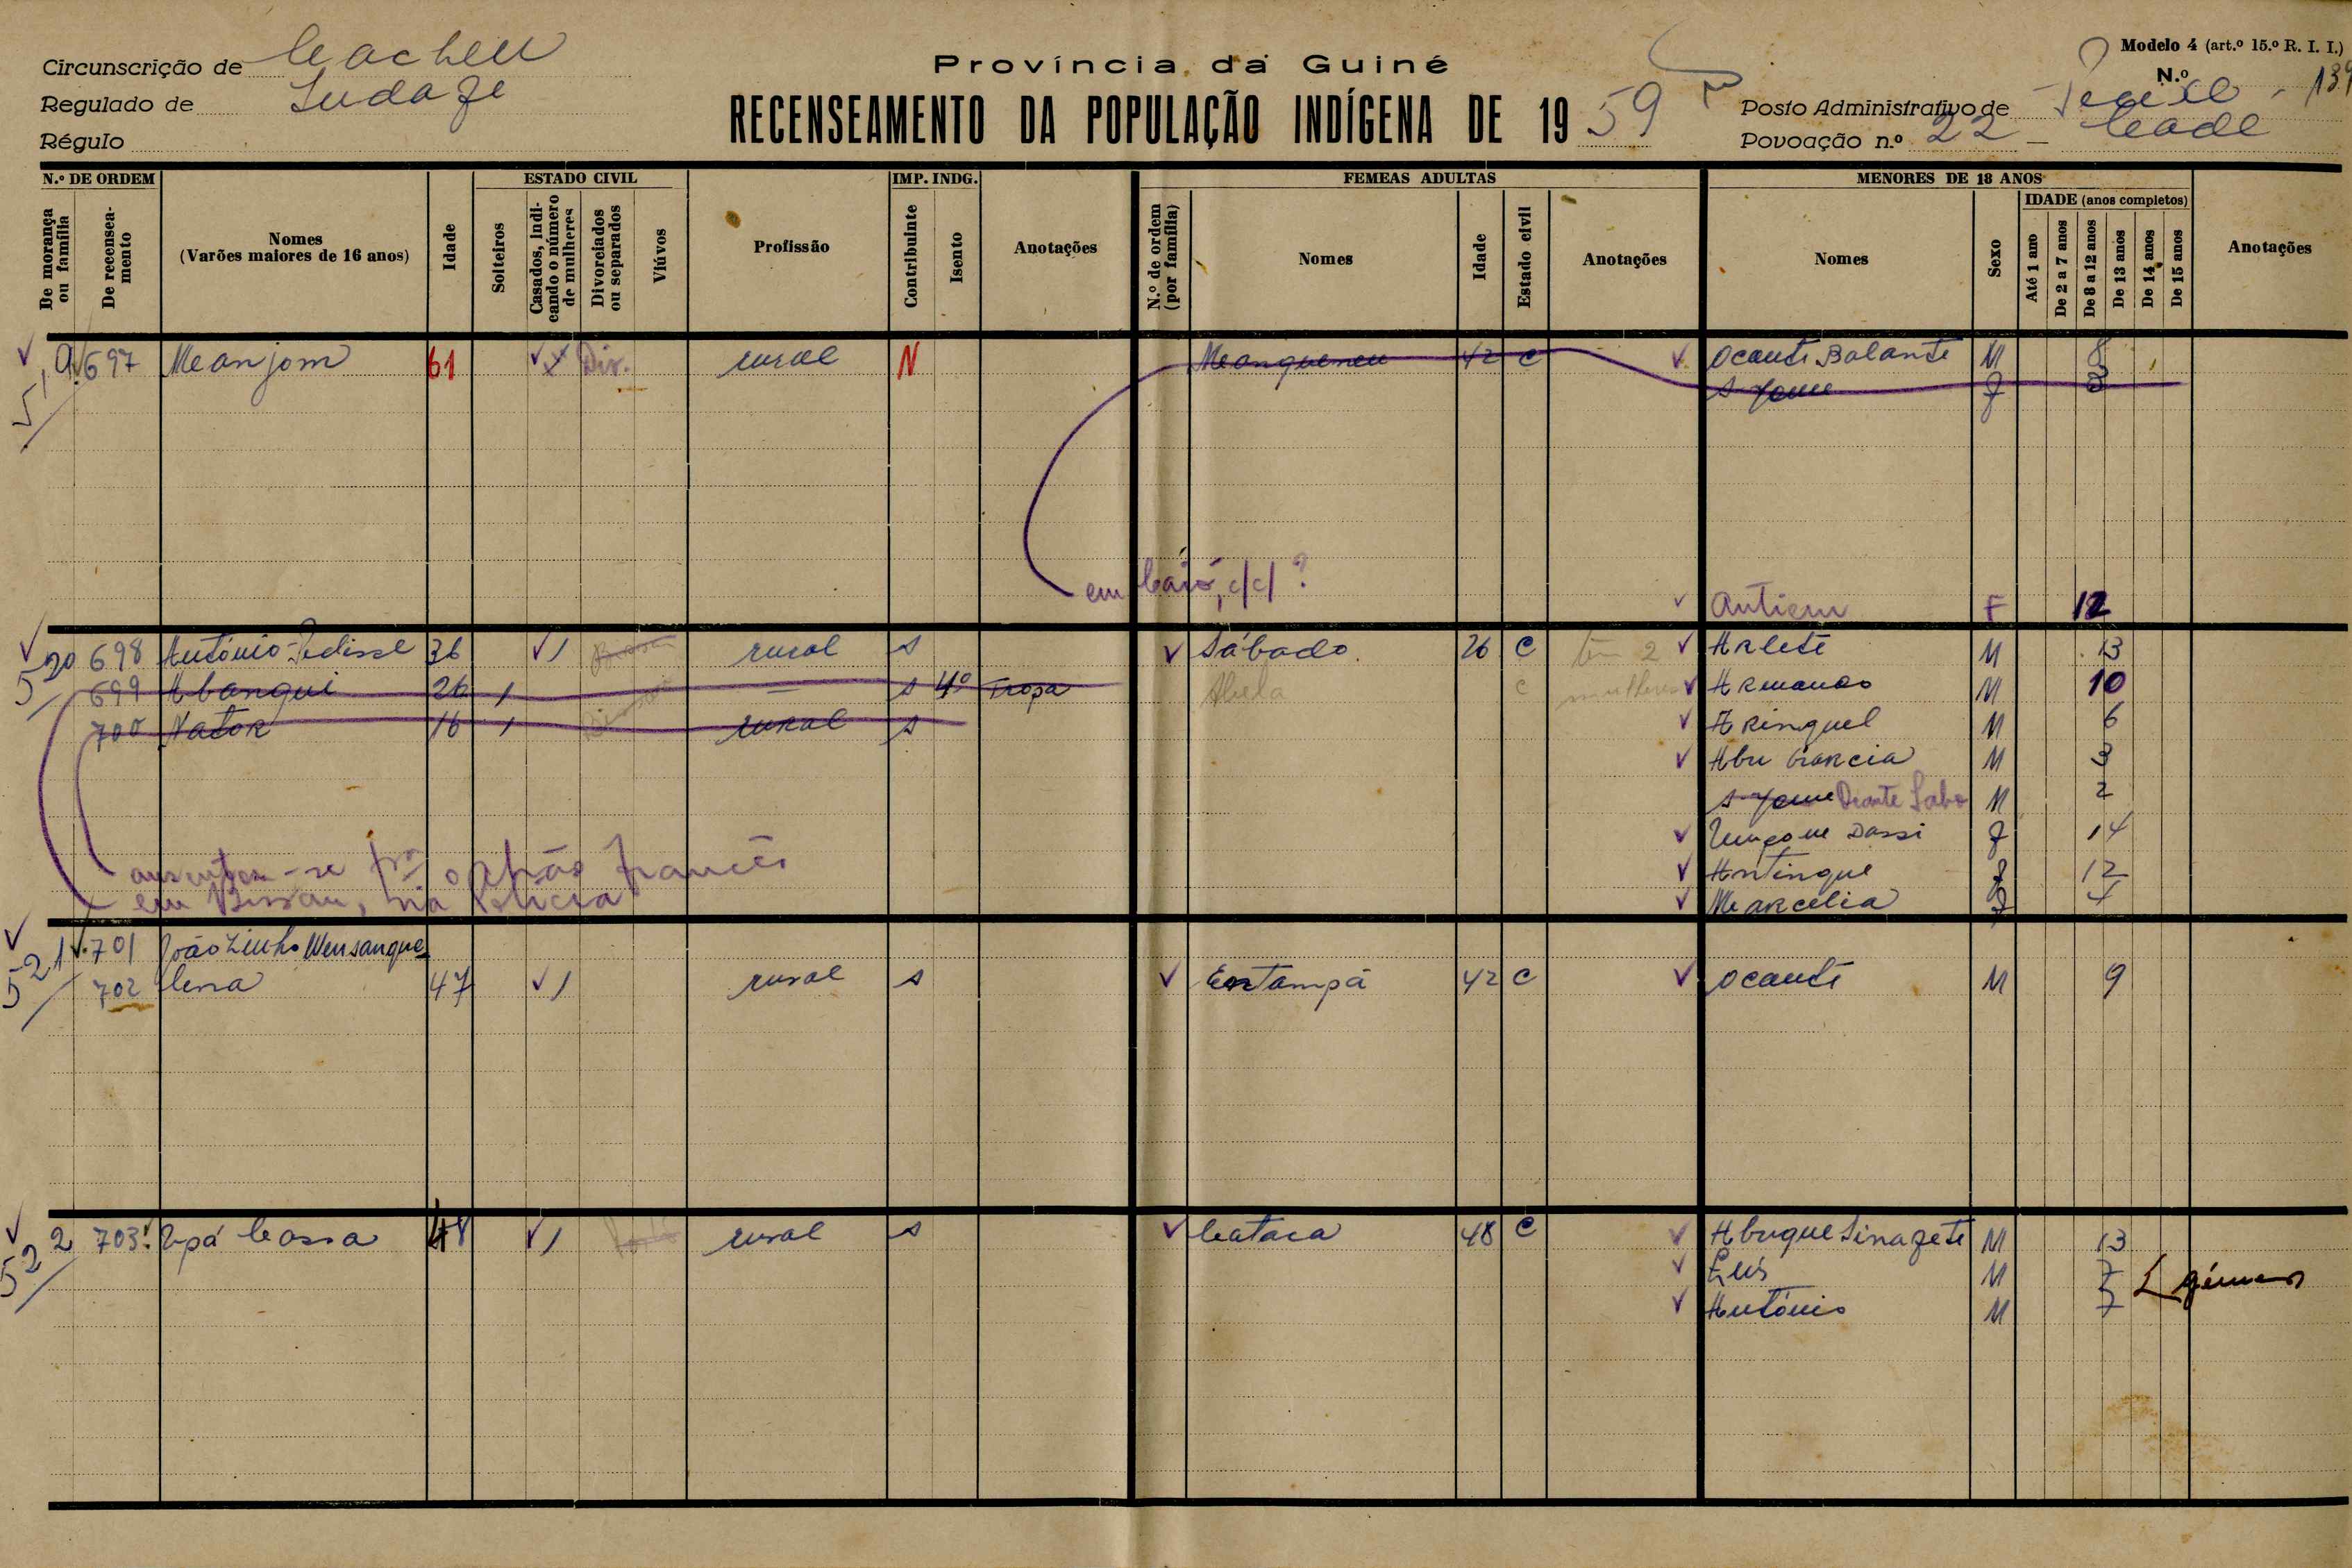 Circunscrição de Cacheu
Regulado de
Régulo
Província da Guiné
RECENSEAMENTO DA POPULAÇÃO INDÍGENA DE 19 59
Modelo 4 (art.º 15.º R. I. I.)
N.º 139
Posto Administrativo de
Povoação n.º 22 —
N.º DE ORDEM
De morança ou família
De recenseamento
Nomes
(Varões maiores de 16 anos)
Idade
ESTADO CIVIL
Solteiros
Casados, indicando o número de mulheres
Divorciados ou separados
Viúvos
Profissão
IMP. INDG.
Contribuinte
Isento
Anotações
FEMEAS ADULTAS
N.º de ordem (por família)
Nomes
Idade
Estado civil
Anotações
MENORES DE 18 ANOS
Nomes
Sexo
IDADE (anos completos)
Até 1 ano
De 2 a 7 anos
De 8 a 12 anos
De 13 anos
De 14 anos
De 15 anos
Anotações
697 Manjom 61 Div. rural N 42 C Ocante Balante M 8
F
em Caió, c/c/ ?
Antiem F 12
20 698 António 36 rural s Sábado 26 C tem 2 Arlete M 13
699 Abangui 26 — s 4º Tropa C mulheres Armando M 10
700 Nator 16 rural s Aringuel M 6
Abu Garcia M 3
M 2
Dassi F 14
Antingue F 12
Marcelia F 4
ausentou-se prª o Chão francês
em Bissau, na Polícia
21 701 João Zinho
702 47 rural s Entampá 42 C Ocante M 9
2 703 Upá Cassa 48 rural s Cataca 48 C Abugue Sinagete M 13
Luís M 7
António M 7 gémeos